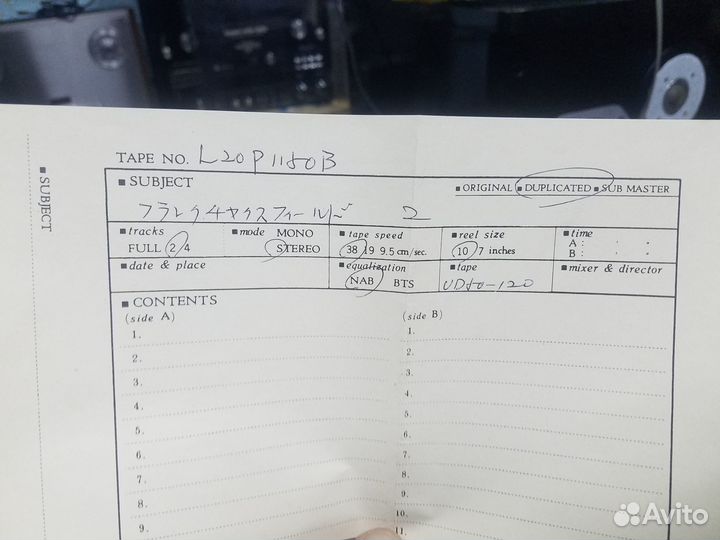 TAPE NO. L20P1150B
■ SUBJECT
■ SUBJECT
■ ORIGINAL ■ DUPLICATED ■ SUB MASTER
フランクチャクスフィールド 2
■ tracks
FULL 2 4
■ mode MONO
STEREO
■ tape speed
38 19 9.5 cm/sec.
■ reel size
10 7 inches
■ time
A :
B :
■ date & place
■ equalization
NAB BTS
■ tape
UD50-120
■ mixer & director
■ CONTENTS
(side A)
1.
2.
3.
4.
5.
6.
7.
8.
9.
(side B)
1.
2.
3.
4.
5.
6.
7.
8.
9.
10.
11.
Avito